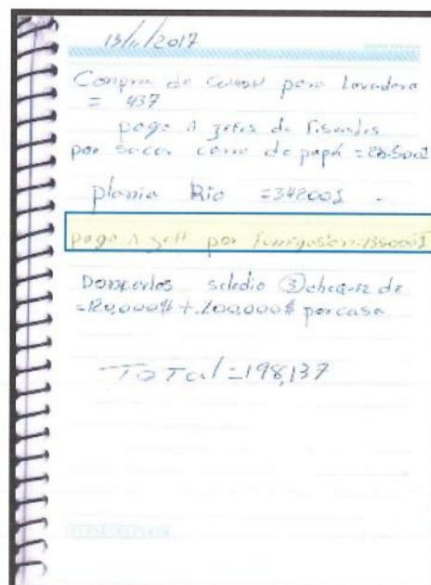 13/11/2017
Compra de para lavadora
= 437
pago a jefes de Fiscales
por sacar carro de papá =
planta Rio =34200$
pago a jett por fumigasion=135000$
Doncarlos seledio ③ cheques de
=120,000$ + 200,000$ por casa
ToTal=198,137